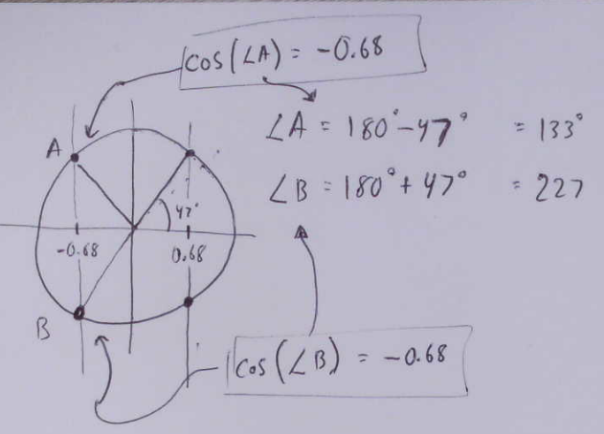 cos(∠A) = -0.68
∠A = 180° - 47° = 133°
∠B = 180° + 47° = 227
A
47°
-0.68
0.68
B
cos(∠B) = -0.68